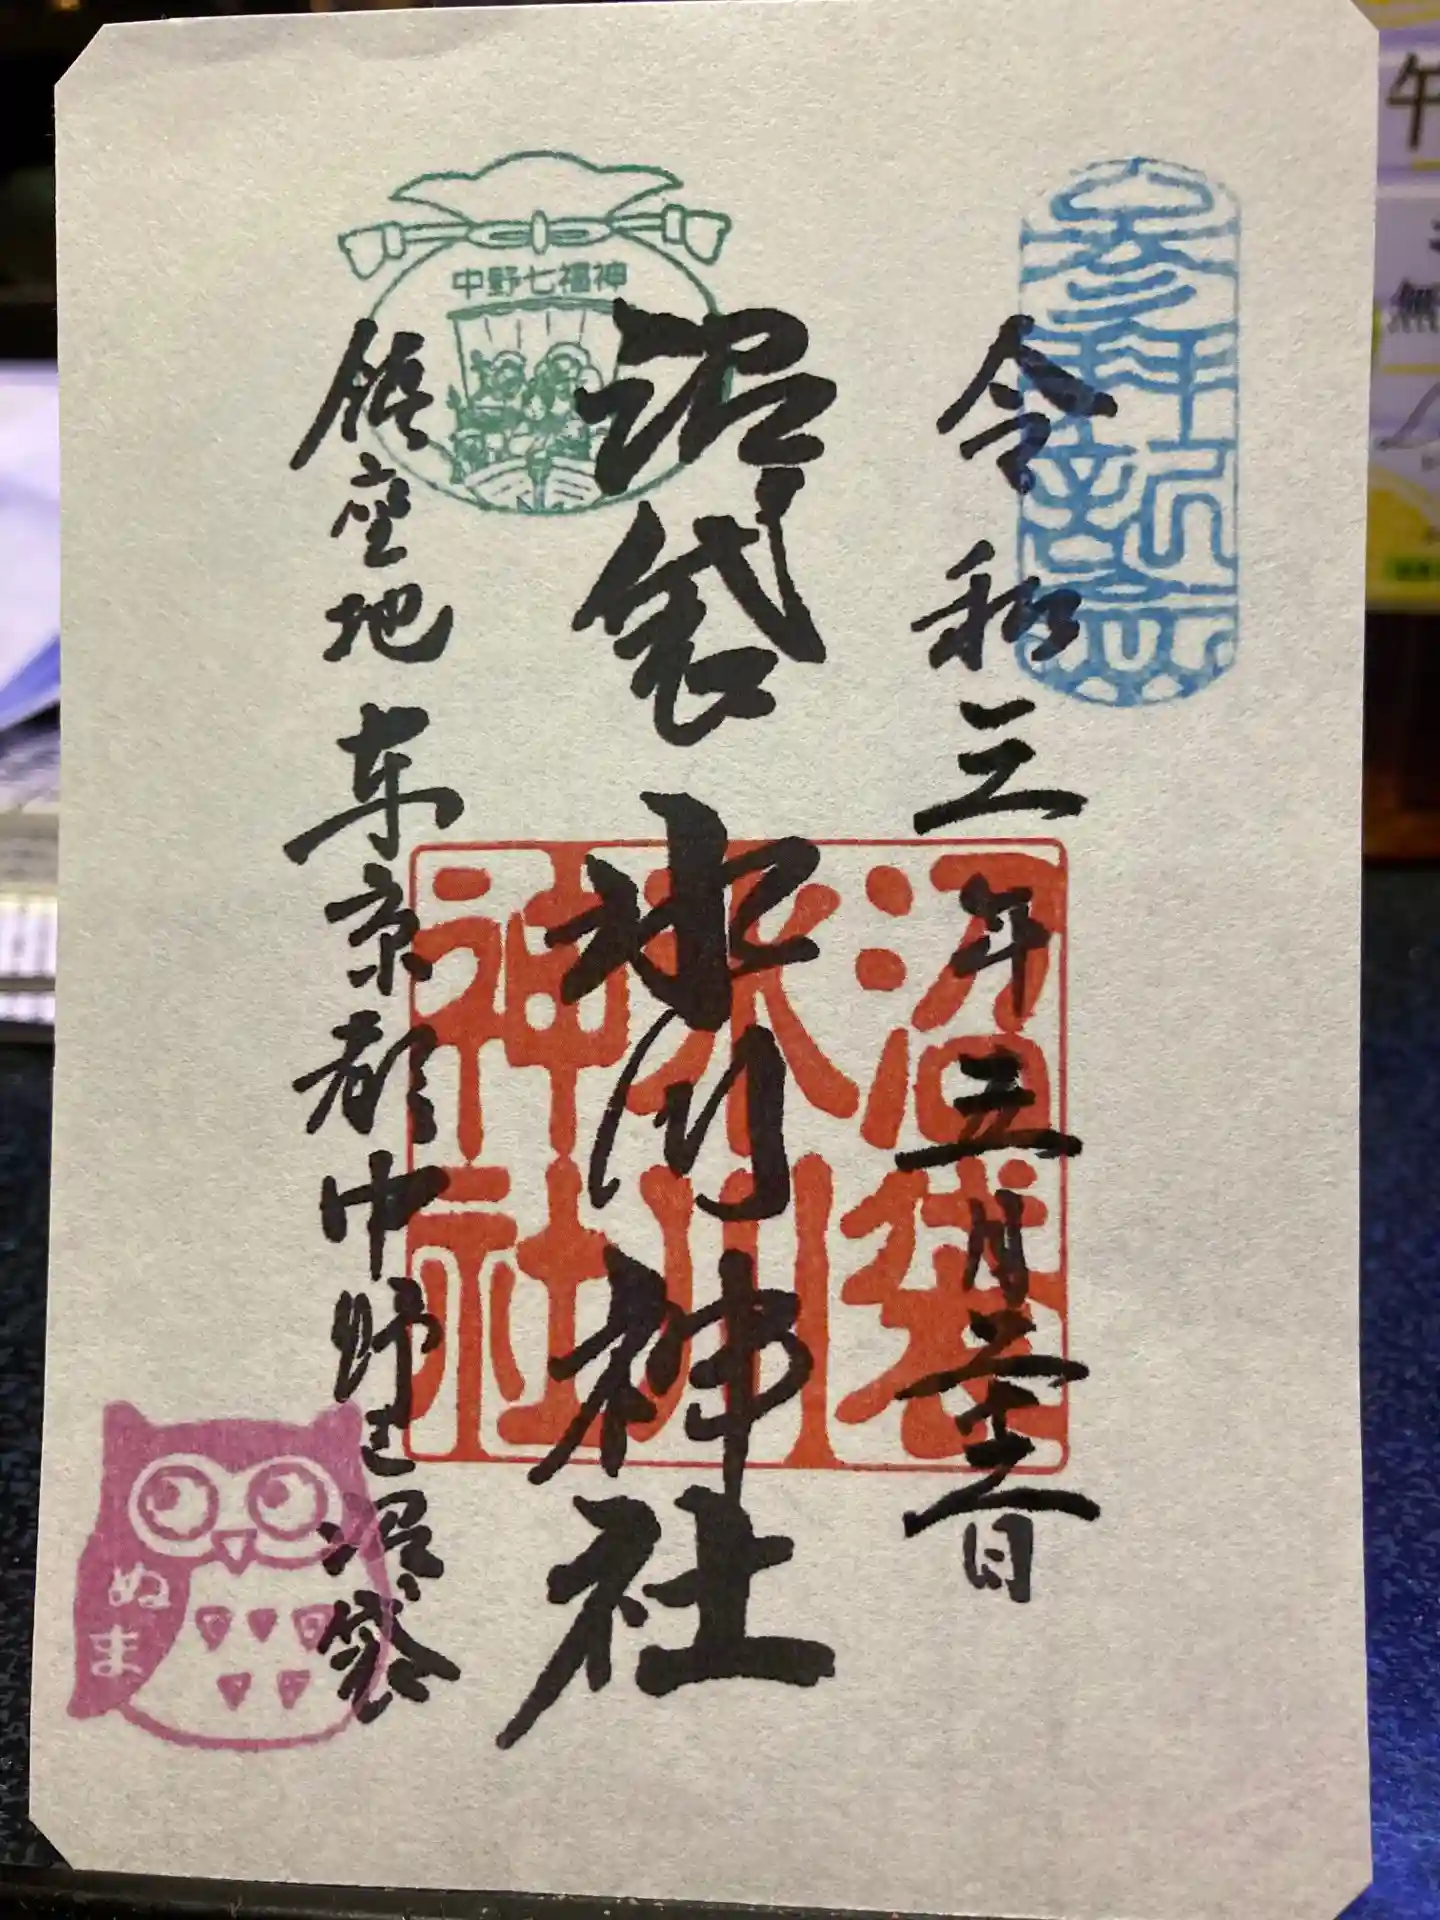 令和三年五月二十二日
沼袋氷川神社
鎮座地 東京都中野区沼袋
中野七福神
沼袋
氷川
神社
ぬま
午
無